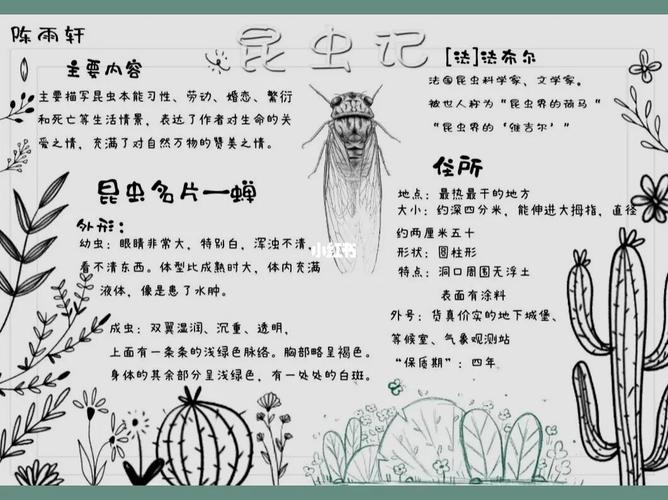 陈雨轩
昆虫记
[法]法布尔
主要内容
主要描写昆虫本能习性、劳动、婚恋、繁衍
和死亡等生活情景,表达了作者对生命的关
爱之情,充满了对自然万物的赞美之情。
法国昆虫科学家、文学家。
被世人称为“昆虫界的荷马“
“昆虫界的‘维吉尔’”
昆虫名片一蝉
外形:
幼虫:眼睛非常大,特别白,浑浊不清,
看不清东西。体型比成熟时大,体内充满
液体,像是患了水肿。
成虫:双翼湿润、沉重、透明,
上面有一条条的浅绿色脉络。胸部略呈褐色。
身体的其余部分呈浅绿色,有一处处的白斑。
小红书
住所
地点:最热最干的地方
大小:约深四分米,能伸进大拇指,直径
约两厘米五十
形状:圆柱形
特点:洞口周围无浮土
表面有涂料
外号:货真价实的地下城堡、
等候室、气象观测站
“保质期”:四年